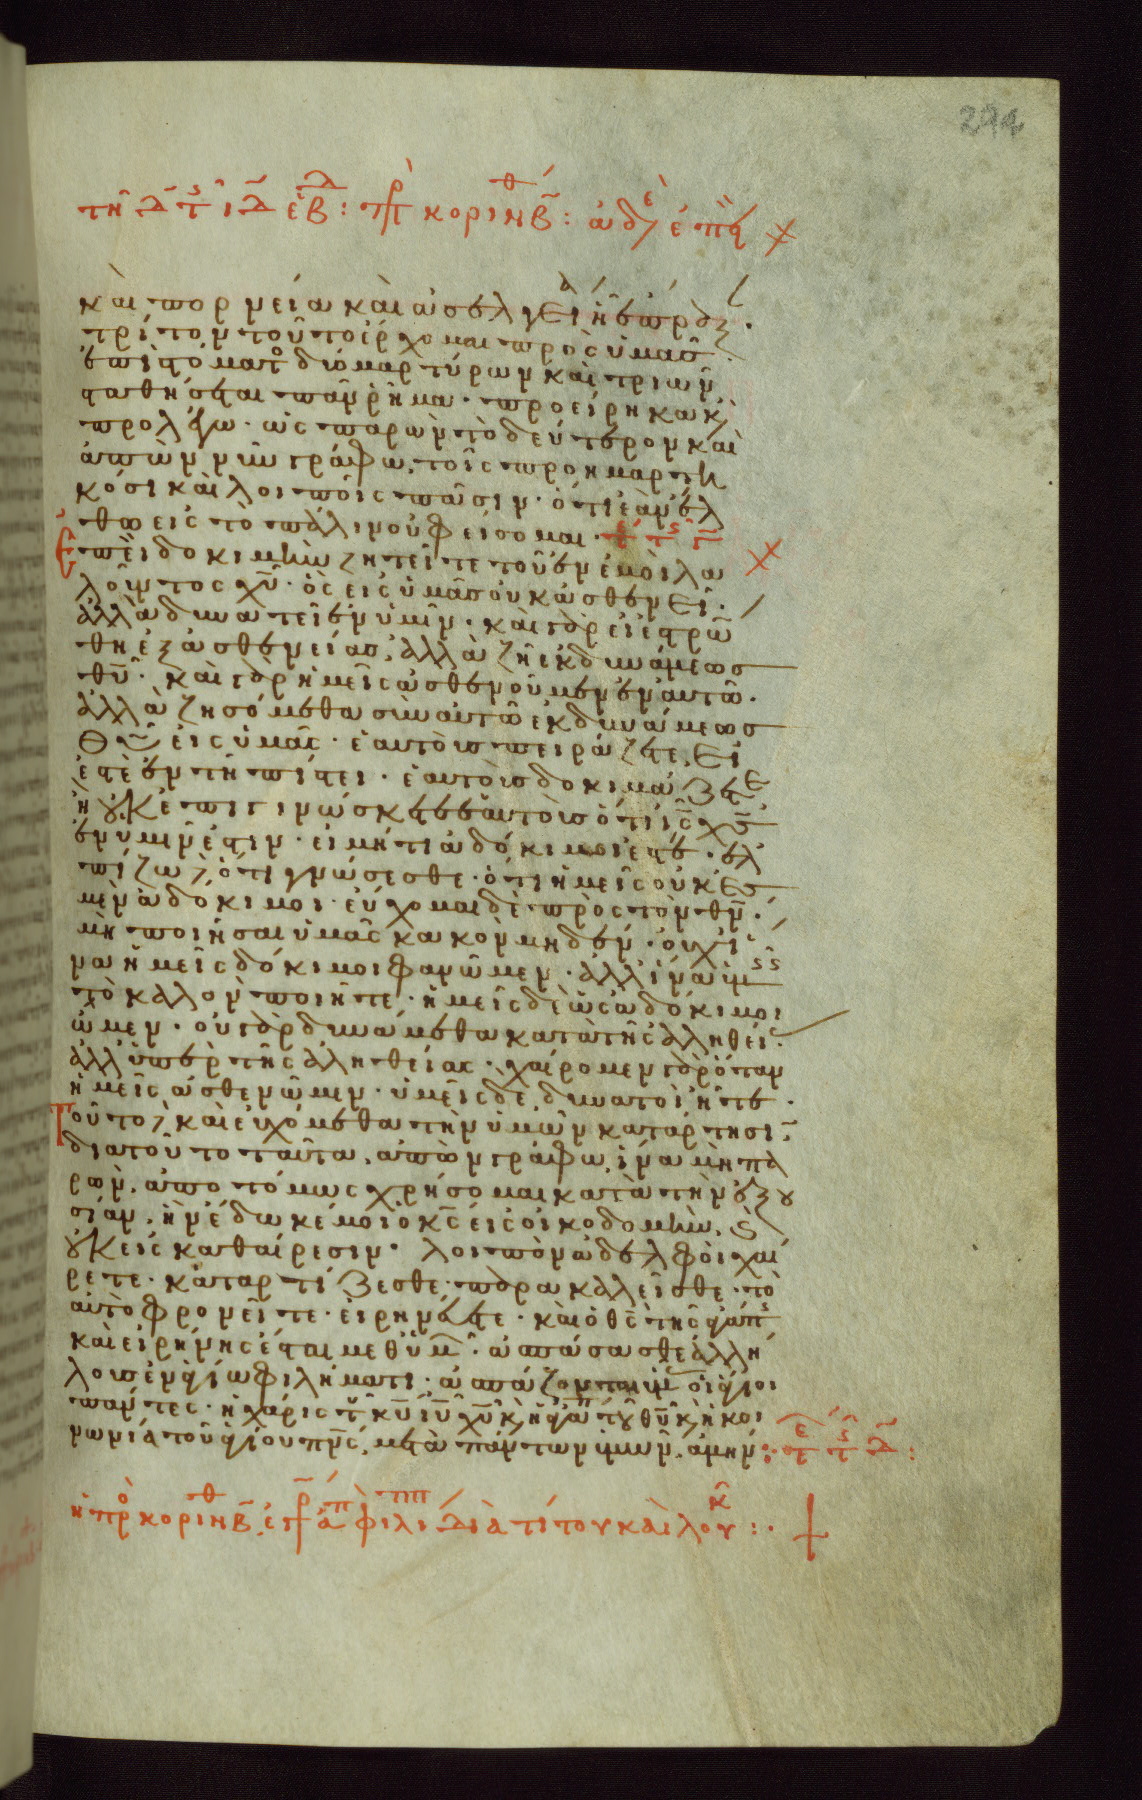 294
τῆ δ τ ιδ ἑβδ : πρ κορινθ β : ἀδε ἐπει
καὶ πορνεία καὶ ἀσελγεία ἧ ἔπραξ.
τρίτον τοῦτο ἔρχομαι πρὸς ὑμᾶς.
ἐπὶ στόματος δύο μαρτύρων καὶ τριῶν
σταθήσεται πᾶν ῥῆμα. προείρηκα κ
προλέγω. ὡς παρὼν τὸ δεύτερον καὶ
ἀπὼν νῦν γράφω, τοῖς προημαρτη
κόσι καὶ λοιποῖς πᾶσιν. ὅτι ἐὰν ἔλ
θω εἰς τὸ πάλιν οὐ φείσομαι.
ἐπεὶ δοκιμὴν ζητεῖτε τοῦ ἐν ἐμοὶ λα
λοῦντος χυ. ὃς εἰς ὑμᾶς οὐκ ἀσθενεῖ.
ἀλλὰ δυνατεῖ ἐν ὑμῖν. καὶ γὰρ εἰ ἐστρώ
θη ἐξ ἀσθενείας, ἀλλὰ ζῆ ἐκ δυνάμεως
θυ. καὶ γὰρ ἡμεῖς ἀσθενοῦμεν ἐν αὐτῶ.
ἀλλὰ ζησόμεθα σὺν αὐτῶ ἐκ δυνάμεως
θυ εἰς ὑμᾶς. ἑαυτοὺς πειράζετε, εἰ
ἐστὲ ἐν τῆ πίστει. ἑαυτοὺς δοκιμάζετε
ἢ οὐκ ἐπιγινώσκετε ἑαυτοὺς ὅτι ις χς
ἐν ὑμῖν ἐστιν. εἰ μήτι ἀδόκιμοι ἐστέ. ἐλ
πίζω δὲ ὅτι γνώσεσθε. ὅτι ἡμεῖς οὐκ ἐσ
μὲν ἀδόκιμοι. εὔχομαι δὲ πρὸς τὸν θν.
μὴ ποιῆσαι ὑμᾶς κακὸν μηδέν. οὐχ ἵ
να ἡμεῖς δόκιμοι φανῶμεν. ἀλλ ἵνα ὑμεῖς
τὸ καλὸν ποιῆτε. ἡμεῖς δὲ ὡς ἀδόκιμοι
ὦμεν. οὐ γὰρ δυνάμεθα κατὰ τῆς ἀληθεί.
ἀλλ ὑπὲρ τῆς ἀληθείας. χαίρομεν γὰρ ὅταν
ἡμεῖς ἀσθενῶμεν. ὑμεῖς δὲ, δυνατοὶ ἦτε.
τοῦτο δὲ καὶ εὐχόμεθα τὴν ὑμῶν κατάρτησι.
διατοῦτο ταῦτα, ἀπὼν γράφω, ἵνα μὴ πα
ρὼν. ἀποτόμως χρήσομαι κατὰ τὴν ἐξου
σίαν. ἣν ἔδωκέ μοι ὁ κς εἰς οἰκοδομὴν, καὶ
οὐκ εἰς καθαίρεσιν. λοιπὸν ἀδελφοὶ χαί
ρετε. καταρτίζεσθε. παρακαλεῖσθε. τὸ
αὐτὸ φρονεῖτε. εἰρηνεύετε. καὶ ὁ θς τῆς ἀγάπης
καὶ εἰρήνης ἔσται μεθ ὑμῶν. ἀσπάσασθε ἀλλή
λους ἐν ἁγίω φιλήματι. ἀσπάζονται ὑμᾶς οἱ ἅγιοι
πάντες. ἡ χάρις τοῦ κυ ιυ χυ κ ἡ ἀγάπη τοῦ θυ κ ἡ κοι
νωνία τοῦ ἁγίου πνς, μετὰ πάντων ὑμῶν. ἀμήν :
ἡ πρὸς κορινθ β. ἐγρ ἀπ φιλίππ διὰ τίτου καὶ λουκ :.